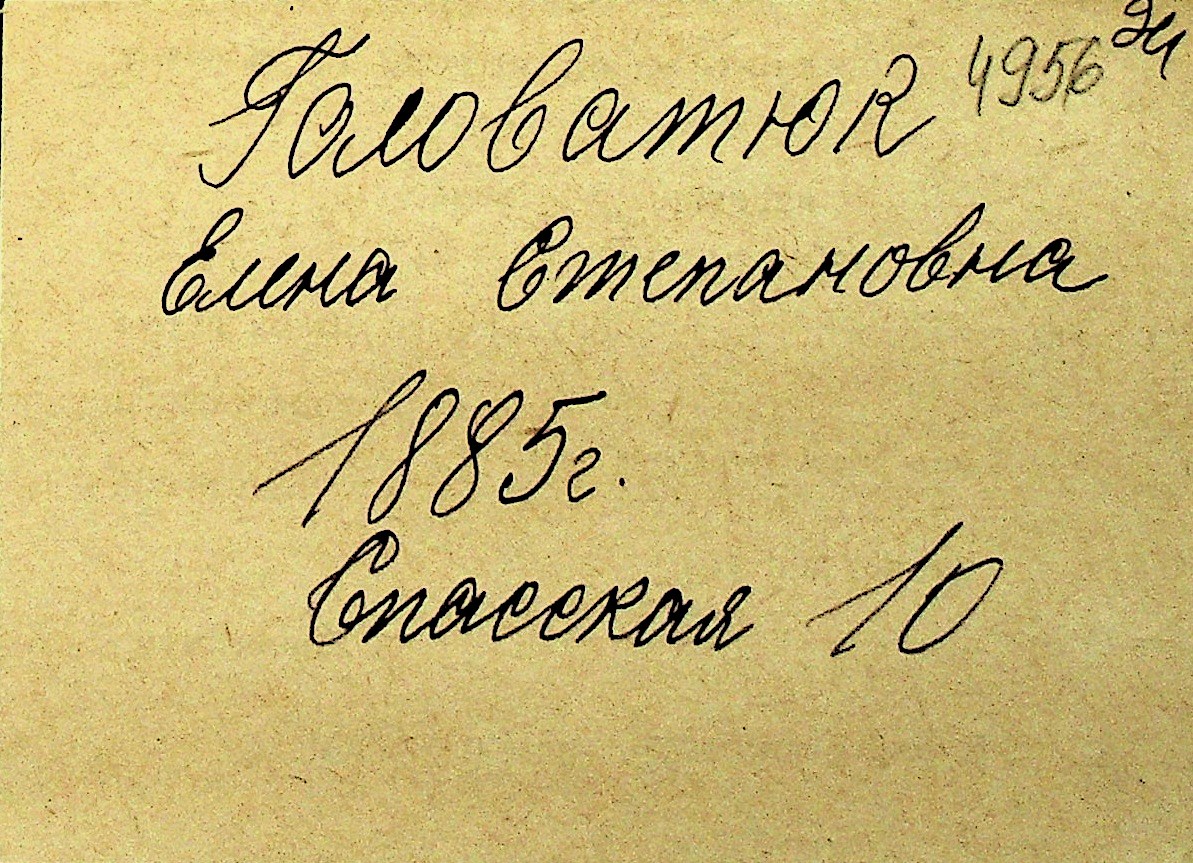 Головатюк 4956
Елена Степановна
1885г.
Спасская 10